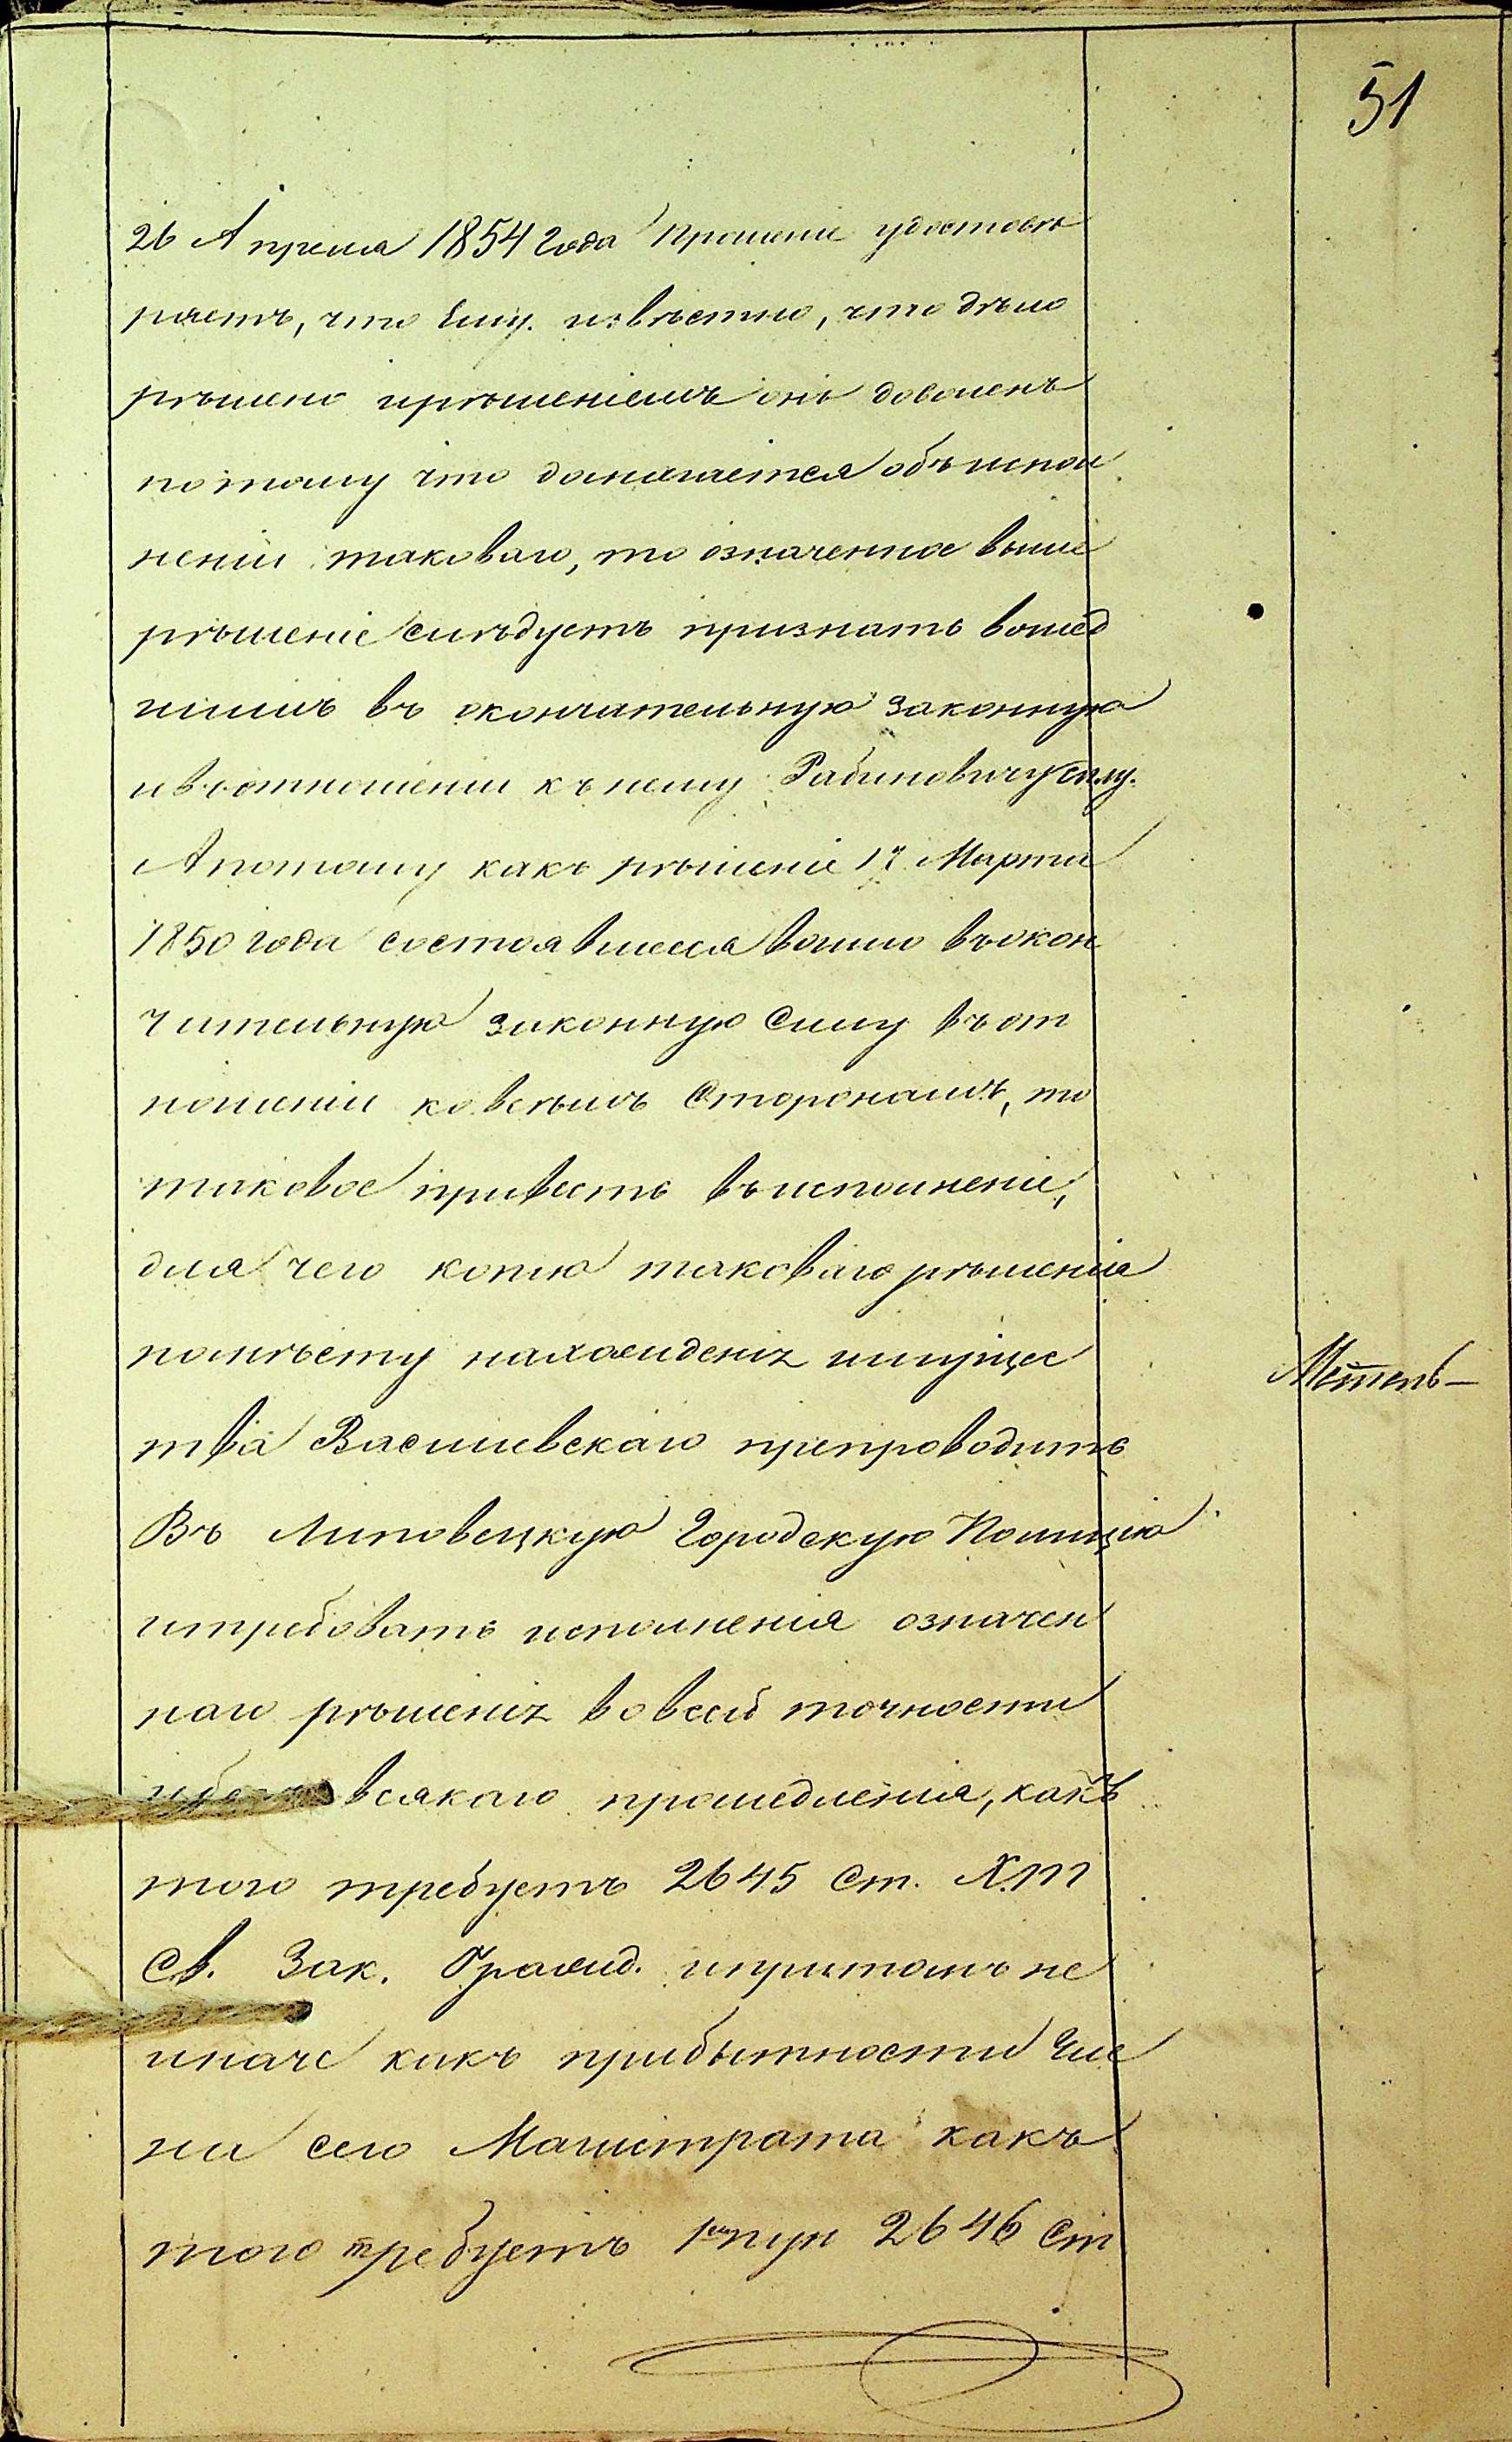 51
26 Апреля 1854 года прошеніе удостовѣ
ряетъ, что Ему извѣстно, что дѣло
рѣшено ирѣшеніемъ онъ доволенъ
потому что домагается объ испол
неніи таковаго, то означенное выше
рѣшеніе слѣдуетъ признать вошед
шимъ въ окончательную законную
ивъ отношеніи къ нему Рабиновичу силу.
А потому какъ рѣшеніе 17 Марта
1850 года состоявшееся вошло въ окон
чительную законную силу въ от
ношеніи ко всѣмъ Сторонамъ, то
таковое привесть въ исполненіе,
для чего копію таковаго рѣшенія
помѣсту нахожденія имущес
тва Василевскаго препроводить
Въ Липовецкую Городскую Полицію
итребовать исполненія означен
наго рѣшенія во всей точности
ибезъ всякаго промедленія, какъ
того требуетъ 2645 Ст. X. т
Св. Зак. Гражд. ипритомъ не
иначе какъ прибытности Чле
на сего Магистрата какъ
того требуетъ 1 пун 2646 Ст